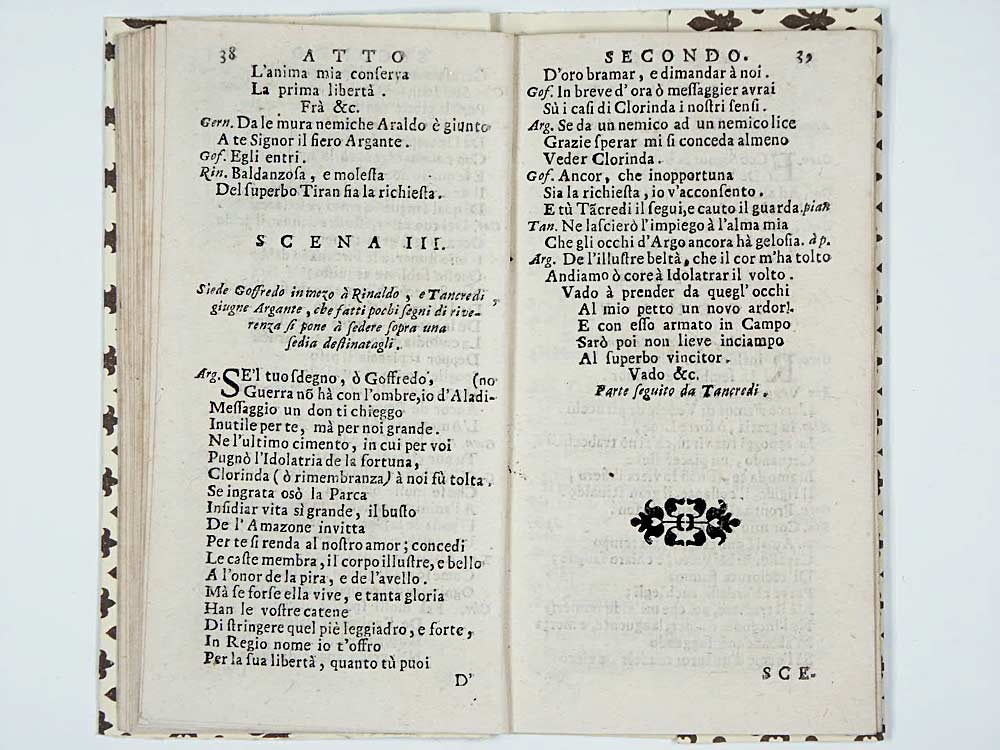 38 ATTO
L'anima mia conſerva
La prima libertà.
Frà &c.
Gern. Da le mura nemiche Araldo è giunto
A te Signor il fiero Argante.
Gof. Egli entri.
Rin. Baldanzoſa, e moleſta
Del ſuperbo Tiran ſia la richieſta.
SCENA III.
Siede Goffredo in mezo à Rinaldo, e Tancredi,
giugne Argante, che fatti pochi ſegni di rive-
renza ſi pone à ſedere ſopra una
ſedia deſtinatagli.
Arg. SE'l tuo ſdegno, ò Goffredo, (no
Guerra nõ hà con l'ombre, io d'Aladi-
Meſſaggio un don ti chieggo
Inutile per te, mà per noi grande.
Ne l'ultimo cimento, in cui per voi
Pugnò l'Idolatria de la fortuna,
Clorinda (ò rimembranza) à noi fù tolta.
Se ingrata osò la Parca
Inſidiar vita sì grande, il buſto
De l'Amazone invitta
Per te ſi renda al noſtro amor; concedi
Le caſte membra, il corpo illuſtre, e bello
A l'onor de la pira, e de l'avello.
Mà ſe forſe ella vive, e tanta gloria
Han le voſtre catene
Di ſtringere quel piè leggiadro, e forte,
In Regio nome io t'offro
Per la ſua libertà, quanto tù puoi
D'
SECONDO. 39
D'oro bramar, e dimandar à noi.
Gof. In breve d'ora ò meſſaggier avrai
Sù i caſi di Clorinda i noſtri ſenſi.
Arg. Se da un nemico ad un nemico lice
Grazie ſperar mi ſi conceda almeno
Veder Clorinda.
Gof. Ancor, che inopportuna
Sia la richieſta, io v'acconſento.
E tù Tãcredi il ſegui, e cauto il guarda. pian
Tan. Ne laſcierò l'impiego à l'alma mia
Che gli occhi d'Argo ancora hà geloſia. à p.
Arg. De l'illuſtre beltà, che il cor m'ha tolto
Andiamo ò core à Idolatrar il volto.
Vado à prender da quegl'occhi
Al mio petto un novo ardor.
E con eſſo armato in Campo
Sarò poi non lieve inciampo
Al ſuperbo vincitor.
Vado &c.
Parte ſeguito da Tancredi.
SCE-